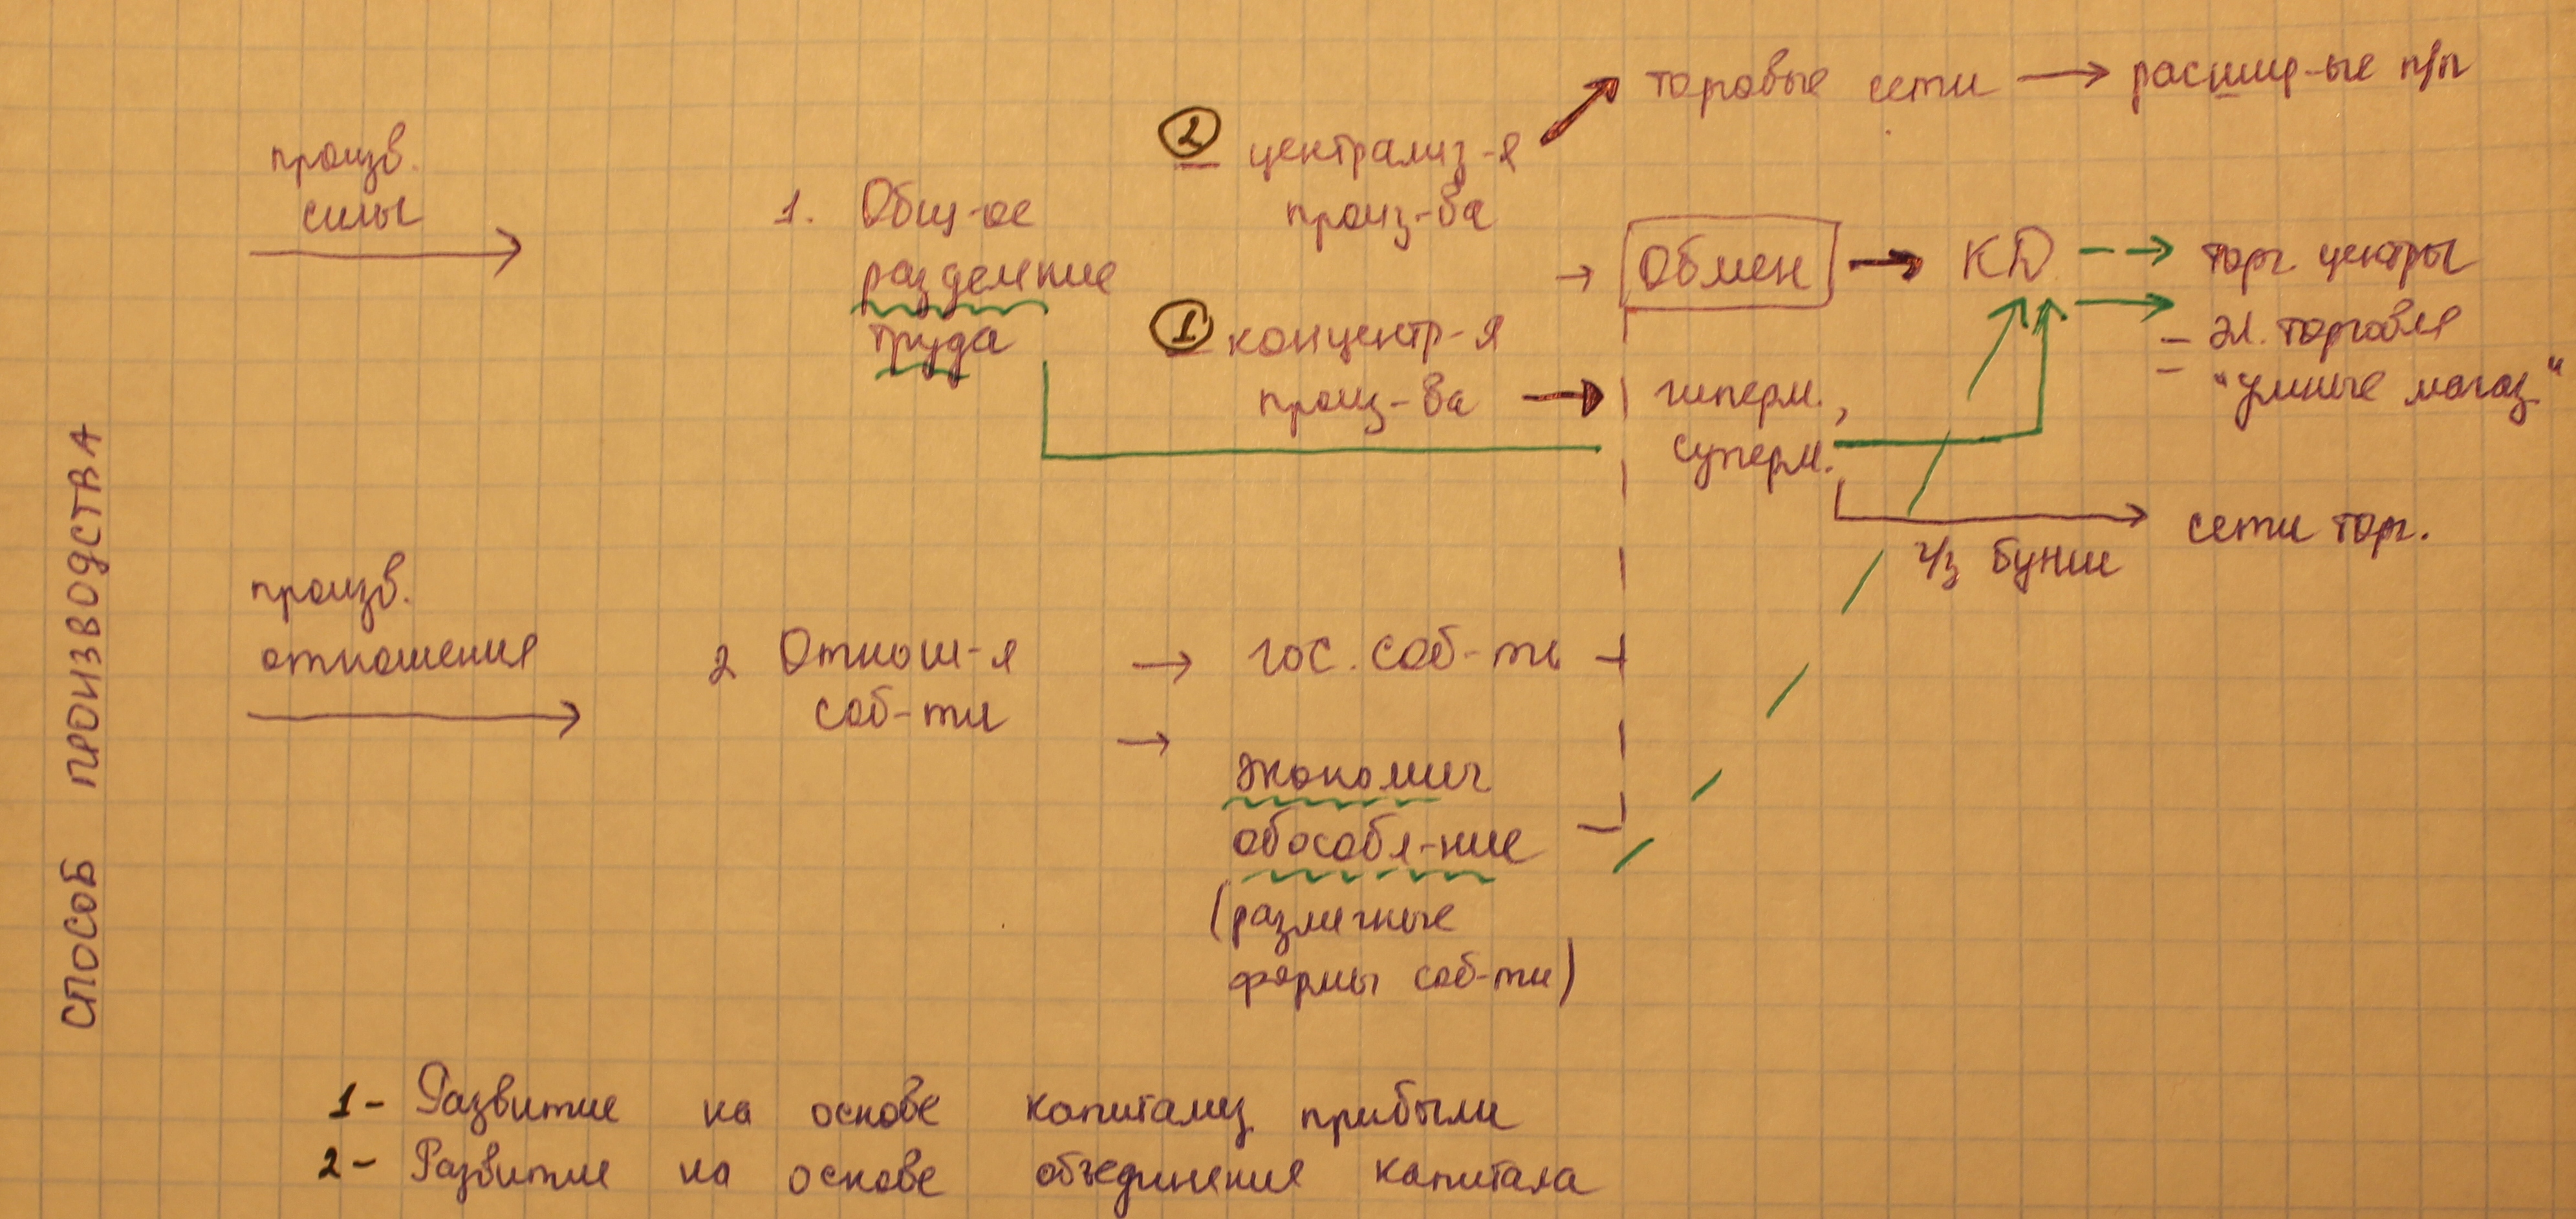 СПОСОБ ПРОИЗВОДСТВА
произв.
силы
1. Общ-ое
разделение
труда
2 централиз-я
произ-ва
торовые сети → расшир-ые п/п
1 концентр-я
произ-ва
→ Обмен → КД → торг. центры
- эл. торговля
- "умные магаз"
гиперм.,
суперм.
сети торг.
ч/з
произв.
отношения
2 Отнош-я
соб-ти
→ гос. соб-ть
→ экономич
обособл-ние
(различные
формы соб-ти)
1- Развитие на основе капитализ прибыли
2- Развитие на основе объединения капитала